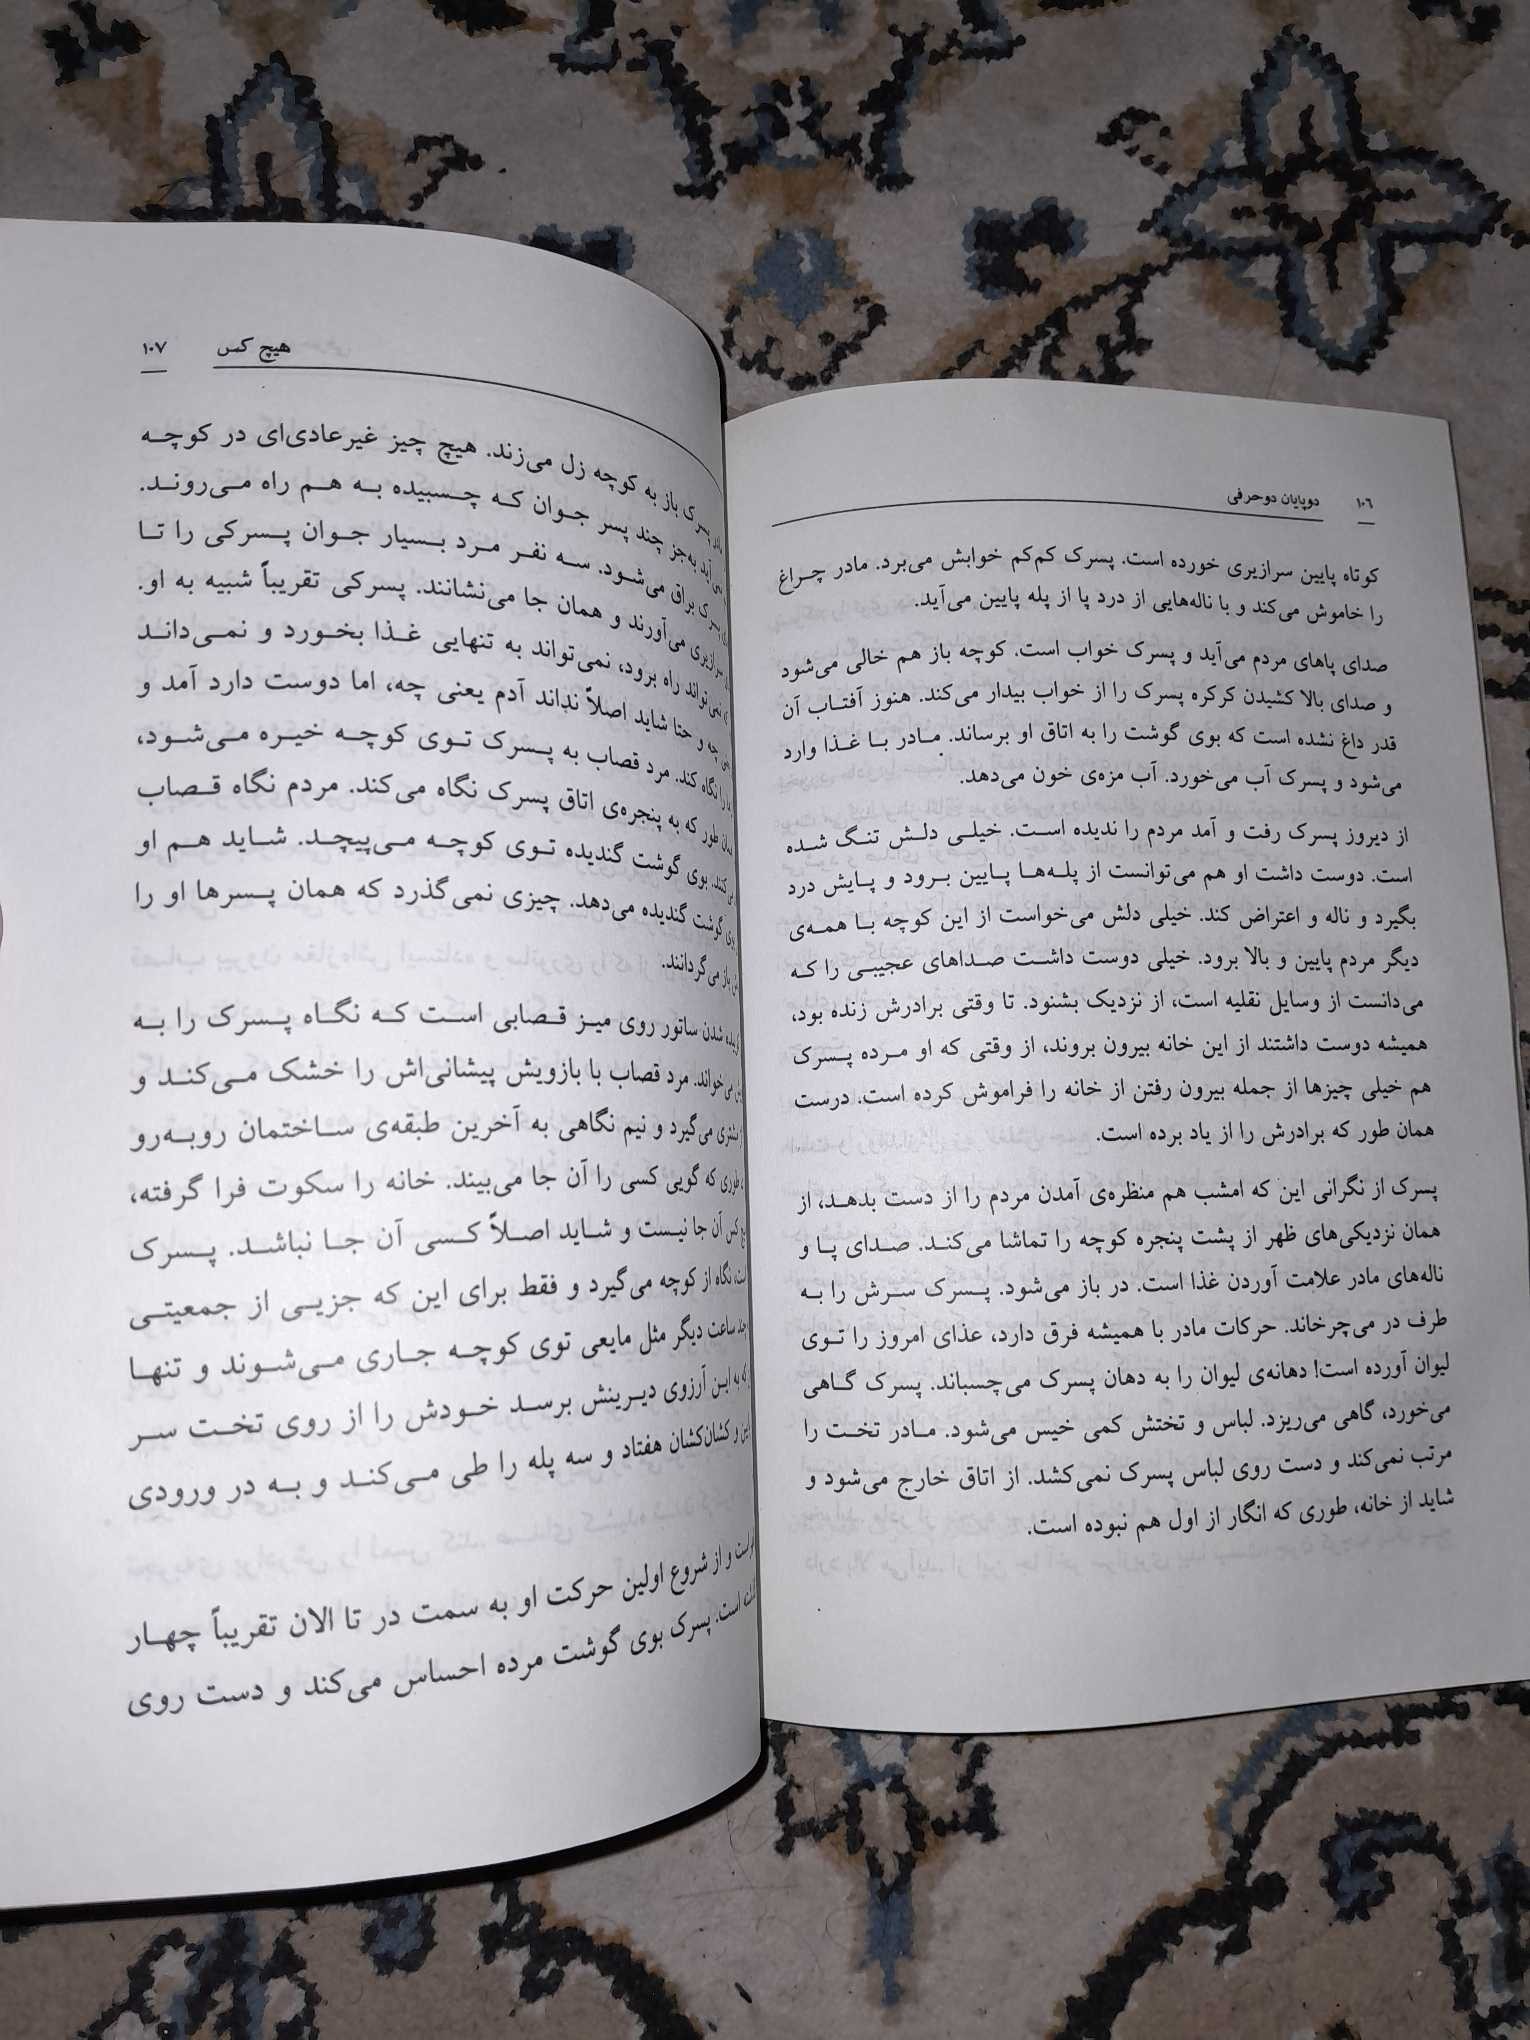 ۱۰۶ دوپایان دوحرفی
کوتاه پایین سرازیری خورده است. پسرک کم‌کم خوابش می‌برد. مادر چراغ
را خاموش می‌کند و با ناله‌هایی از درد پا از پله پایین می‌آید.
صدای پاهای مردم می‌آید و پسرک خواب است. کوچه باز هم خالی می‌شود
و صدای بالا کشیدن کرکره پسرک را از خواب بیدار می‌کند. هنوز آفتاب آن
قدر داغ نشده است که بوی گوشت را به اتاق او برساند. مادر با غذا وارد
می‌شود و پسرک آب می‌خورد. آب مزه‌ی خون می‌دهد.
از دیروز پسرک رفت و آمد مردم را ندیده است. خیلی دلش تنگ شده
است. دوست داشت او هم می‌توانست از پله‌ها پایین برود و پایش درد
بگیرد و ناله و اعتراض کند. خیلی دلش می‌خواست از این کوچه با همه‌ی
دیگر مردم پایین و بالا برود. خیلی دوست داشت صداهای عجیبی را که
می‌دانست از وسایل نقلیه است، از نزدیک بشنود. تا وقتی برادرش زنده بود،
همیشه دوست داشتند از این خانه بیرون بروند، از وقتی که او مرده پسرک
هم خیلی چیزها از جمله بیرون رفتن از خانه را فراموش کرده است. درست
همان طور که برادرش را از یاد برده است.
پسرک از نگرانی این که امشب هم منظره‌ی آمدن مردم را از دست بدهد، از
همان نزدیکی‌های ظهر از پشت پنجره کوچه را تماشا می‌کند. صدای پا و
ناله‌های مادر علامت آوردن غذا است. در باز می‌شود. پسرک سرش را به
طرف در می‌چرخاند. حرکات مادر با همیشه فرق دارد، عذای امروز را توی
لیوان آورده است! دهانه‌ی لیوان را به دهان پسرک می‌چسباند. پسرک گاهی
می‌خورد، گاهی می‌ریزد. لباس و تختش کمی خیس می‌شود. مادر تخت را
مرتب نمی‌کند و دست روی لباس پسرک نمی‌کشد. از اتاق خارج می‌شود و
شاید از خانه، طوری که انگار از اول هم نبوده است.
هیچ کس ۱۰۷
پسرک باز به کوچه زل می‌زند. هیچ چیز غیرعادی‌ای در کوچه
به‌جز چند پسر جوان که چسبیده به هم راه می‌روند.
پسرک براق می‌شود. سه نفر مرد بسیار جوان پسرکی را تا
سرازیری می‌آورند و همان جا می‌نشانند. پسرکی تقریباً شبیه به او.
نمی‌تواند راه برود، نمی‌تواند به تنهایی غذا بخورد و نمی‌داند
چه و حتا شاید اصلاً نداند آدم یعنی چه، اما دوست دارد آمد و
را نگاه کند. مرد قصاب به پسرک توی کوچه خیره می‌شود،
طور که به پنجره‌ی اتاق پسرک نگاه می‌کند. مردم نگاه قصاب
بوی گوشت گندیده توی کوچه می‌پیچد. شاید هم او
گوشت گندیده می‌دهد. چیزی نمی‌گذرد که همان پسرها او را
باز می‌گردانند.
شدن ساتور روی میز قصابی است که نگاه پسرک را به
مرد قصاب با بازویش پیشانی‌اش را خشک می‌کند و
می‌گیرد و نیم نگاهی به آخرین طبقه‌ی ساختمان روبه‌رو
طوری که گویی کسی را آن جا می‌بیند. خانه را سکوت فرا گرفته،
کس آن جا نیست و شاید اصلاً کسی آن جا نباشد. پسرک
نگاه از کوچه می‌گیرد و فقط برای این که جزیی از جمعیتی
ساعت دیگر مثل مایعی توی کوچه جاری می‌شوند و تنها
به این آرزوی دیرینش برسد خودش را از روی تخت سر
و کشان‌کشان هفتاد و سه پله را طی می‌کند و به در ورودی
است و از شروع اولین حرکت او به سمت در تا الان تقریباً چهار
است. پسرک بوی گوشت مرده احساس می‌کند و دست روی